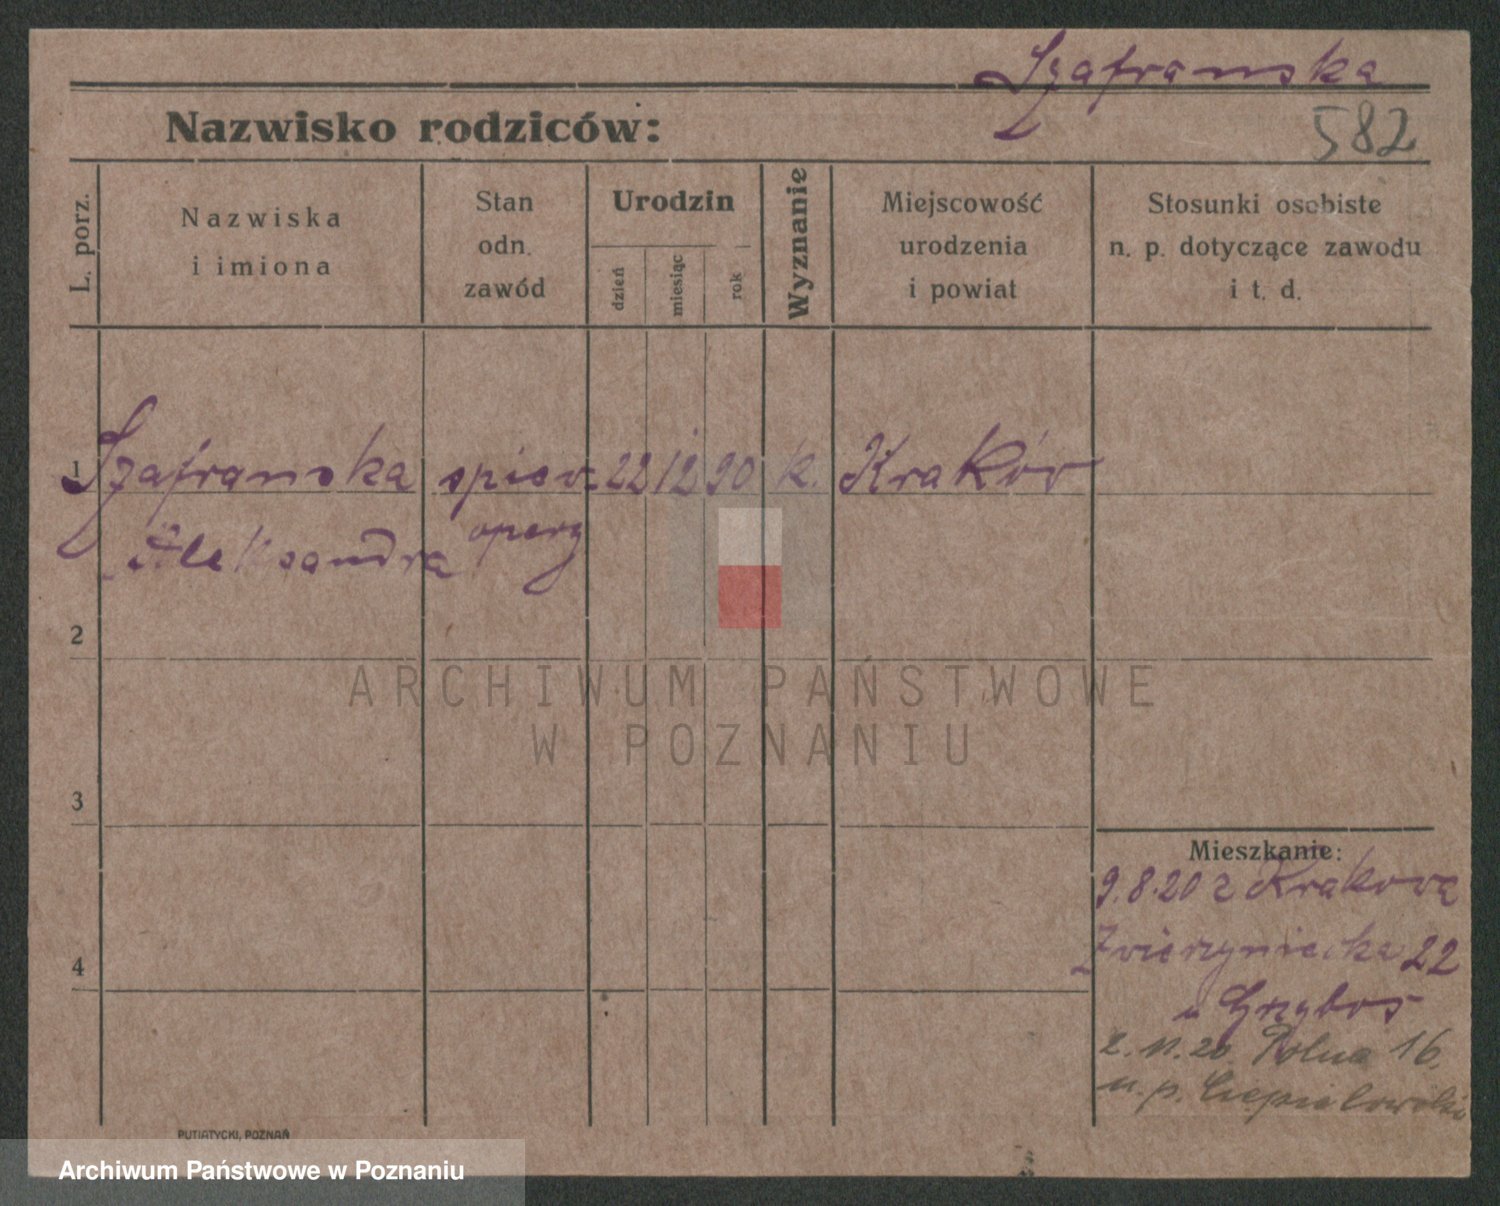 Szafranska
Nazwisko rodziców:
582
L. porz.
Nazwiska
i imiona
Stan
odn.
zawód
Urodzin
dzień
miesiąc
rok
Wyznanie
Miejscowość
urodzenia
i powiat
Stosunki osobiste
n. p. dotyczące zawodu
i t. d.
1 Szafranska spiew. 22 12 90 k. Kraków
Aleksandra opery
2
3
4
Mieszkanie:
9.8.20 z Krakowa
Zwierzyniecka 22
u Grzyboś
2. 11. 20. Polna 16.
u. p.
PUTIATYCKI, POZNAŃ
ARCHIWUM PAŃSTWOWE
W POZNANIU
Archiwum Państwowe w Poznaniu